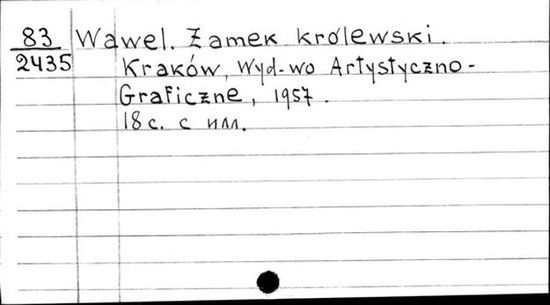 83 Wawel. Żamek królewski.
2435 Kraków, Wyd-wo Artystyczno-
Graficzne, 1957.
18 с. с илл.